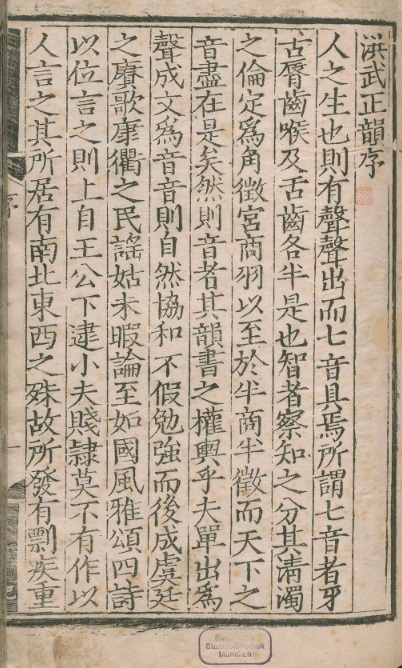 洪武正韻序
人之生也則有聲聲出而七音具焉所謂七音者牙
舌脣齒喉及舌齒各半是也智者察知之分其清濁
之倫定為角徵宮商羽以至於半商半徵而天下之
音盡在是矣然則音者其韻書之權輿乎夫單出為
聲成文為音音則自然協和不假勉強而後成虞廷
之賡歌康衢之民謠姑未暇論至如國風雅頌四詩
以位言之則上自王公下逮小夫賤隸莫不有作以
人言之其所居有南北東西之殊故所發有剽疾重
Staatsbibliothek
München